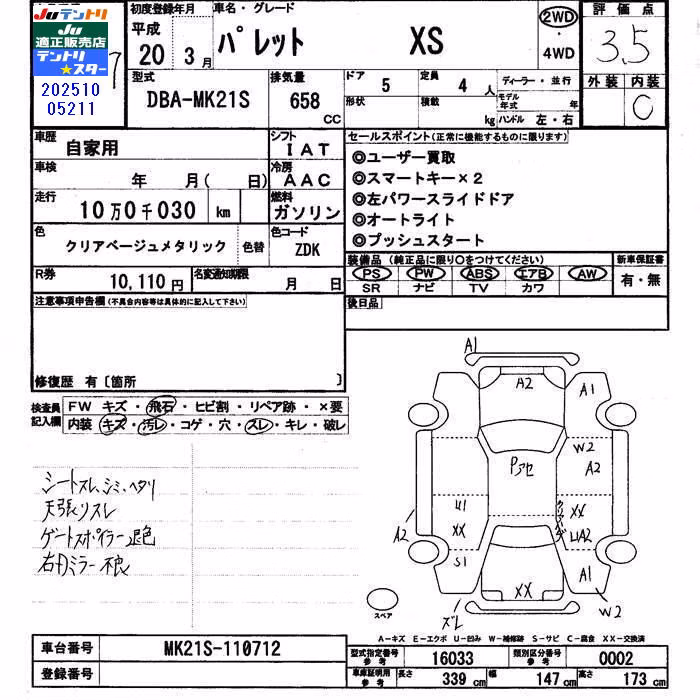 Juテントリ
Ju
適正販売店
テントリ
★スター
202510
05211
初度登録年月
平成
20 3 月
車名・グレード
パレット XS
2WD
・
4WD
評価点
3.5
外装 内装
C
型式
DBA-MK21S
排気量
658
CC
ドア
5
形状
定員
4 人
積載
kg
ディーラー・並行
モデル年式 年
ハンドル 左・右
車歴
自家用
シフト
IAT
車検
年 月( 日)
冷房
AAC
走行
10万0千030 km
燃料
ガソリン
色
クリアベージュメタリック
色替
色コード
ZDK
R券
10,110円
名変通知期限
月 日
セールスポイント(正常に機能するものに限ります)
◎ユーザー買取
◎スマートキー×2
◎左パワースライドドア
◎オートライト
◎プッシュスタート
装備品(純正品に限り○をつけてください)
PS PW ABS エアB AW
SR ナビ TV カワ
新車保証書
有・無
後日品
注意事項申告欄(不具合内容等は具体的に記入して下さい)
修復歴 有〔箇所 〕
検査員
記入欄
FW キズ・飛石・ヒビ割・リペア跡・×要
内装 キズ・汚レ・コゲ・穴・スレ・キレ・破レ
シートスレ、シミ、ヘタリ
天張りスレ
ゲートスポイラー退色
右Dミラー不良
A1
A2
A1
W2
A2
Pアセ
U1
XX
S1
A2
XX
UA2
A1
W2
XX
ズレ
スペア
A-キズ E-エクボ U-凹み W-補修跡 S-サビ C-腐食 XX-交換済
車台番号
MK21S-110712
登録番号
型式指定番号
参考
16033
類別区分番号
参考
0002
車庫証明用
参考
長さ
339 cm
幅
147 cm
高さ
173 cm